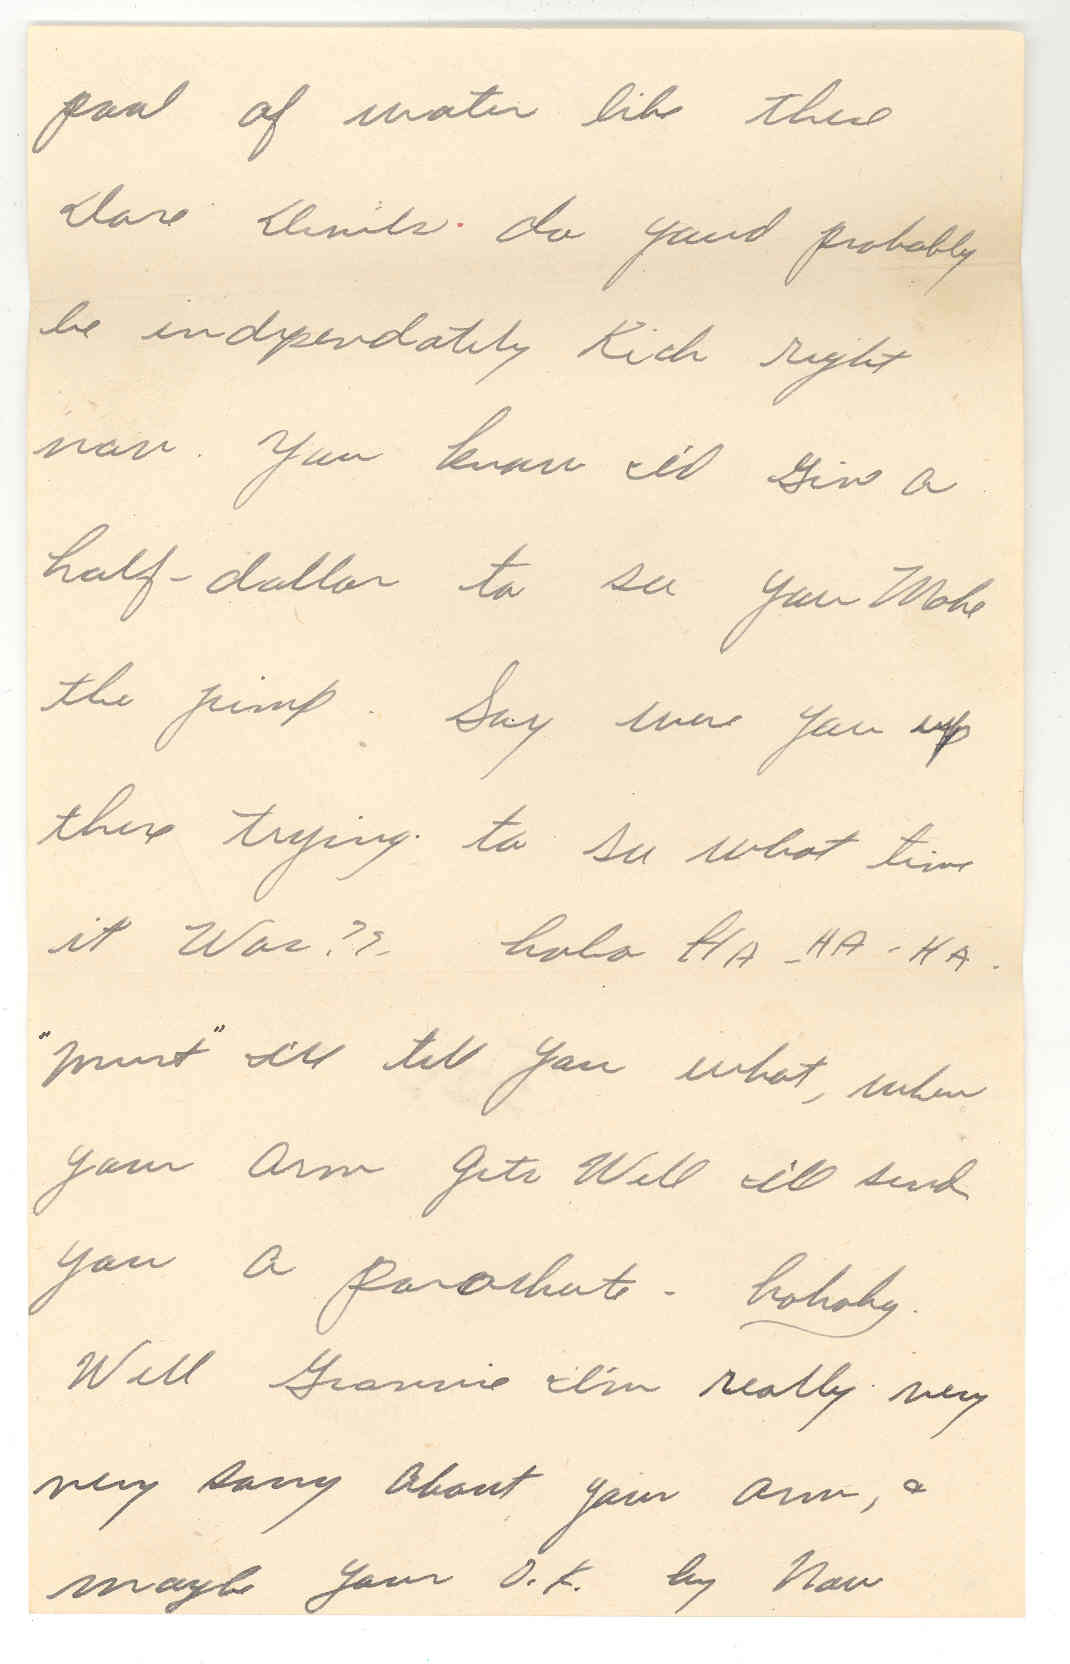 pool of water like these
Dare Devils. do you'd probably
be indpendatily Rich right
now. You know I'd Give a
half-dollar to see you Make
the jump. Say were you up
there trying to see what time
it Was?? hoho HA-HA-HA.
"must" I'll tell you what, when
your arm Gets Well I'll send
you a parashute - hohoho.
Well Grannie I'm really very
very sorry about your arm, &
maybe your O.K. by Now